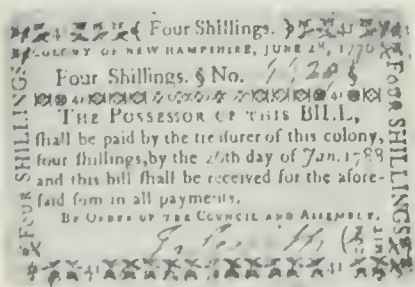 Four Shillings.
COLONY OF NEW HAMPSHIRE, JUNE 28, 1776
Four Shillings. § No. §
THE POSSESSOR OF THIS BILL,
ſhall be paid by the treaſurer of this colony,
four ſhillings, by the 26th day of Jan. 1788
and this bill ſhall be received for the afore-
ſaid ſum in all payments.
BY ORDER OF THE COUNCIL AND ASSEMBLY.
FOUR SHILLINGS
FOUR SHILLINGS